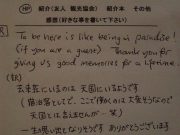 HP 紹介(友人 観光協会) 紹介本 その他
感想(好きな事を書いて下さい)
To be here is like being a paradise!
(if you are a guest) Thank you for
giving us good memories for a lifetime.
(訳)
去来荘にいるのは 天国にいるようです
(宿泊客として。ここで働くのは大変そうなので
天国とは言えませんが…笑)
一生の思い出になりそうです ありがとうございます